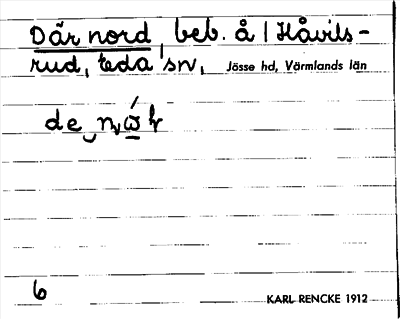 Där nord, beb. å | Håvils-
rud, Eda sn, Jösse hd, Värmlands län
6
KARL RENCKE 1912